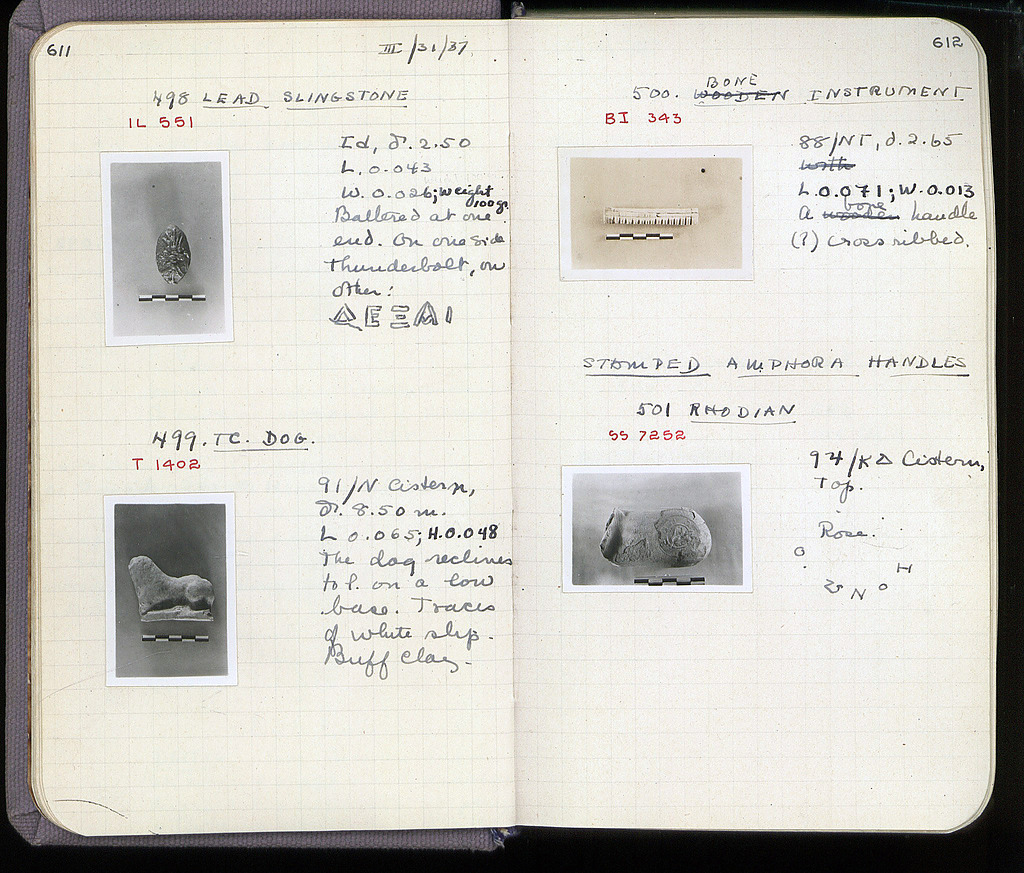 611
III/31/37
498 LEAD SLINGSTONE
IL 551
Id, d. 2.50
L. 0.043
W. 0.026; weight
100 gr.
Battered at one
end. On one side
thunderbolt, on
other:
ΔΕΞΑΙ
499. TC. DOG.
T 1402
91/N Cistern,
d. 8.50 m.
L 0.065; H. 0.048
The dog reclines
to l. on a low
base. Traces
of white slip.
Buff clay.
612
500. WOODEN BONE INSTRUMENT
BI 343
88/NT, d. 2.65
With
L. 0.071; W. 0.013
a wooden bone handle
(?) cross ribbed.
STAMPED AMPHORA HANDLES
501 RHODIAN
SS 7252
94/ΚΔ Cistern,
Top.
Rose.
Ο
Η
Ν Ο